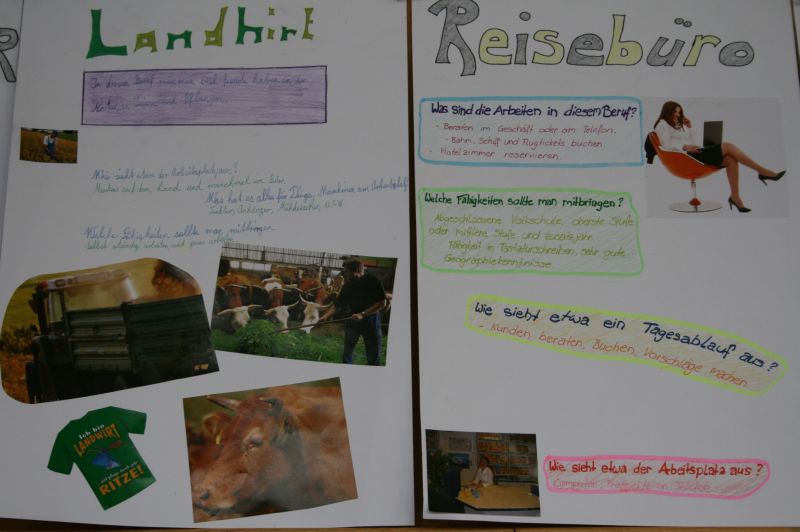 Landwirt
In diesem Beruf muss man viel freude haben an der
Natur, Tieren und Pflanzen.
Wie sieht etwa der Arbeitsplatz aus?
Meistens auf dem Land und manchmal im Büro.
Was hat es alles für Dinge, Maschinen am Arbeitsplatz?
Traktor, Anhänger, Mähdrescher,
Welche Fähigkeiten sollte man mitbringen
Selbst ständig arbeiten, und genau arbeiten.
Ich bin
LANDWIRT
RITZE!
Reisebüro
Was sind die Arbeiten in diesem Beruf?
- Beraten im Geschäft oder am Telefon.
- Bahn, Schiff und Flugtickets buchen
- Hotelzimmer reservieren.
Welche Fähigkeiten sollte man mitbringen?
Abgeschlossene Volkschule, oberste Stufe
oder mittlere Stufe und zusatzjahr.
Fähigkeit in Tastaturschreiben, sehr gute
Geographiekenntnisse.
Wie sieht etwa ein Tagesablauf aus?
- Kunden beraten, Buchen, Vorschläge machen
Wie sieht etwa der Arbeitsplatz aus?
Computer